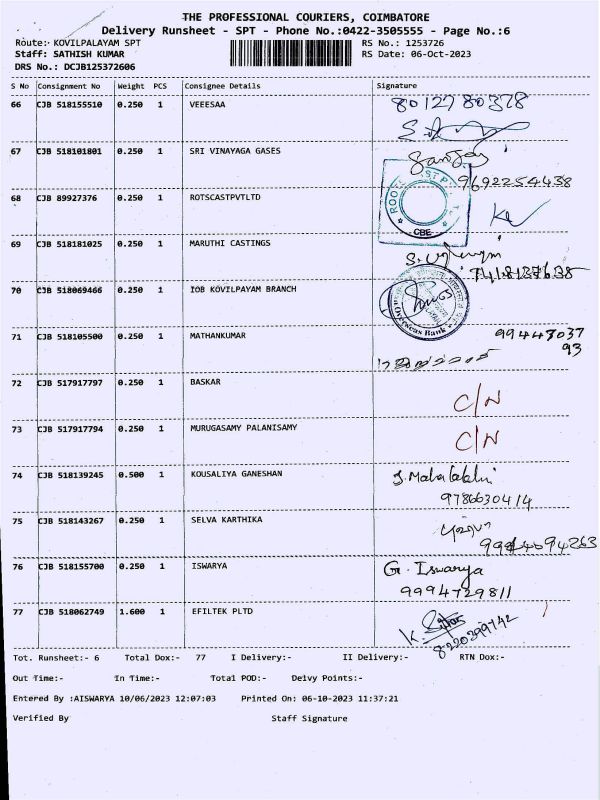 THE PROFESSIONAL COURIERS, COIMBATORE
Delivery Runsheet - SPT - Phone No.:0422-3505555 - Page No.:6
Route:- KOVILPALAYAM SPT RS No.: 1253726
Staff: SATHISH KUMAR RS Date: 06-Oct-2023
DRS No.: DCJB125372606
S No Consignment No Weight PCS Consignee Details Signature
66 CJB 518155510 0.250 1 VEEESAA 8012780378
67 CJB 518101801 0.250 1 SRI VINAYAGA GASES
9692254438
68 CJB 89927376 0.250 1 ROTSCASTPVTLTD
CBE
69 CJB 518181025 0.250 1 MARUTHI CASTINGS
70 CJB 518069466 0.250 1 IOB KOVILPAYAM BRANCH
Overseas Bank
71 CJB 518105500 0.250 1 MATHANKUMAR 99447037
93
72 CJB 517917797 0.250 1 BASKAR
C/N
73 CJB 517917794 0.250 1 MURUGASAMY PALANISAMY
C/N
74 CJB 518139245 0.500 1 KOUSALIYA GANESHAN
9786630414
75 CJB 518143267 0.250 1 SELVA KARTHIKA
76 CJB 518155700 0.250 1 ISWARYA G. Iswarya
9994729811
77 CJB 518062749 1.600 1 EFILTEK PLTD
Tot. Runsheet:- 6 Total Dox:- 77 I Delivery:- II Delivery:- RTN Dox:-
Out Time:- In Time:- Total POD:- Delvy Points:-
Entered By :AISWARYA 10/06/2023 12:07:03 Printed On: 06-10-2023 11:37:21
Verified By Staff Signature